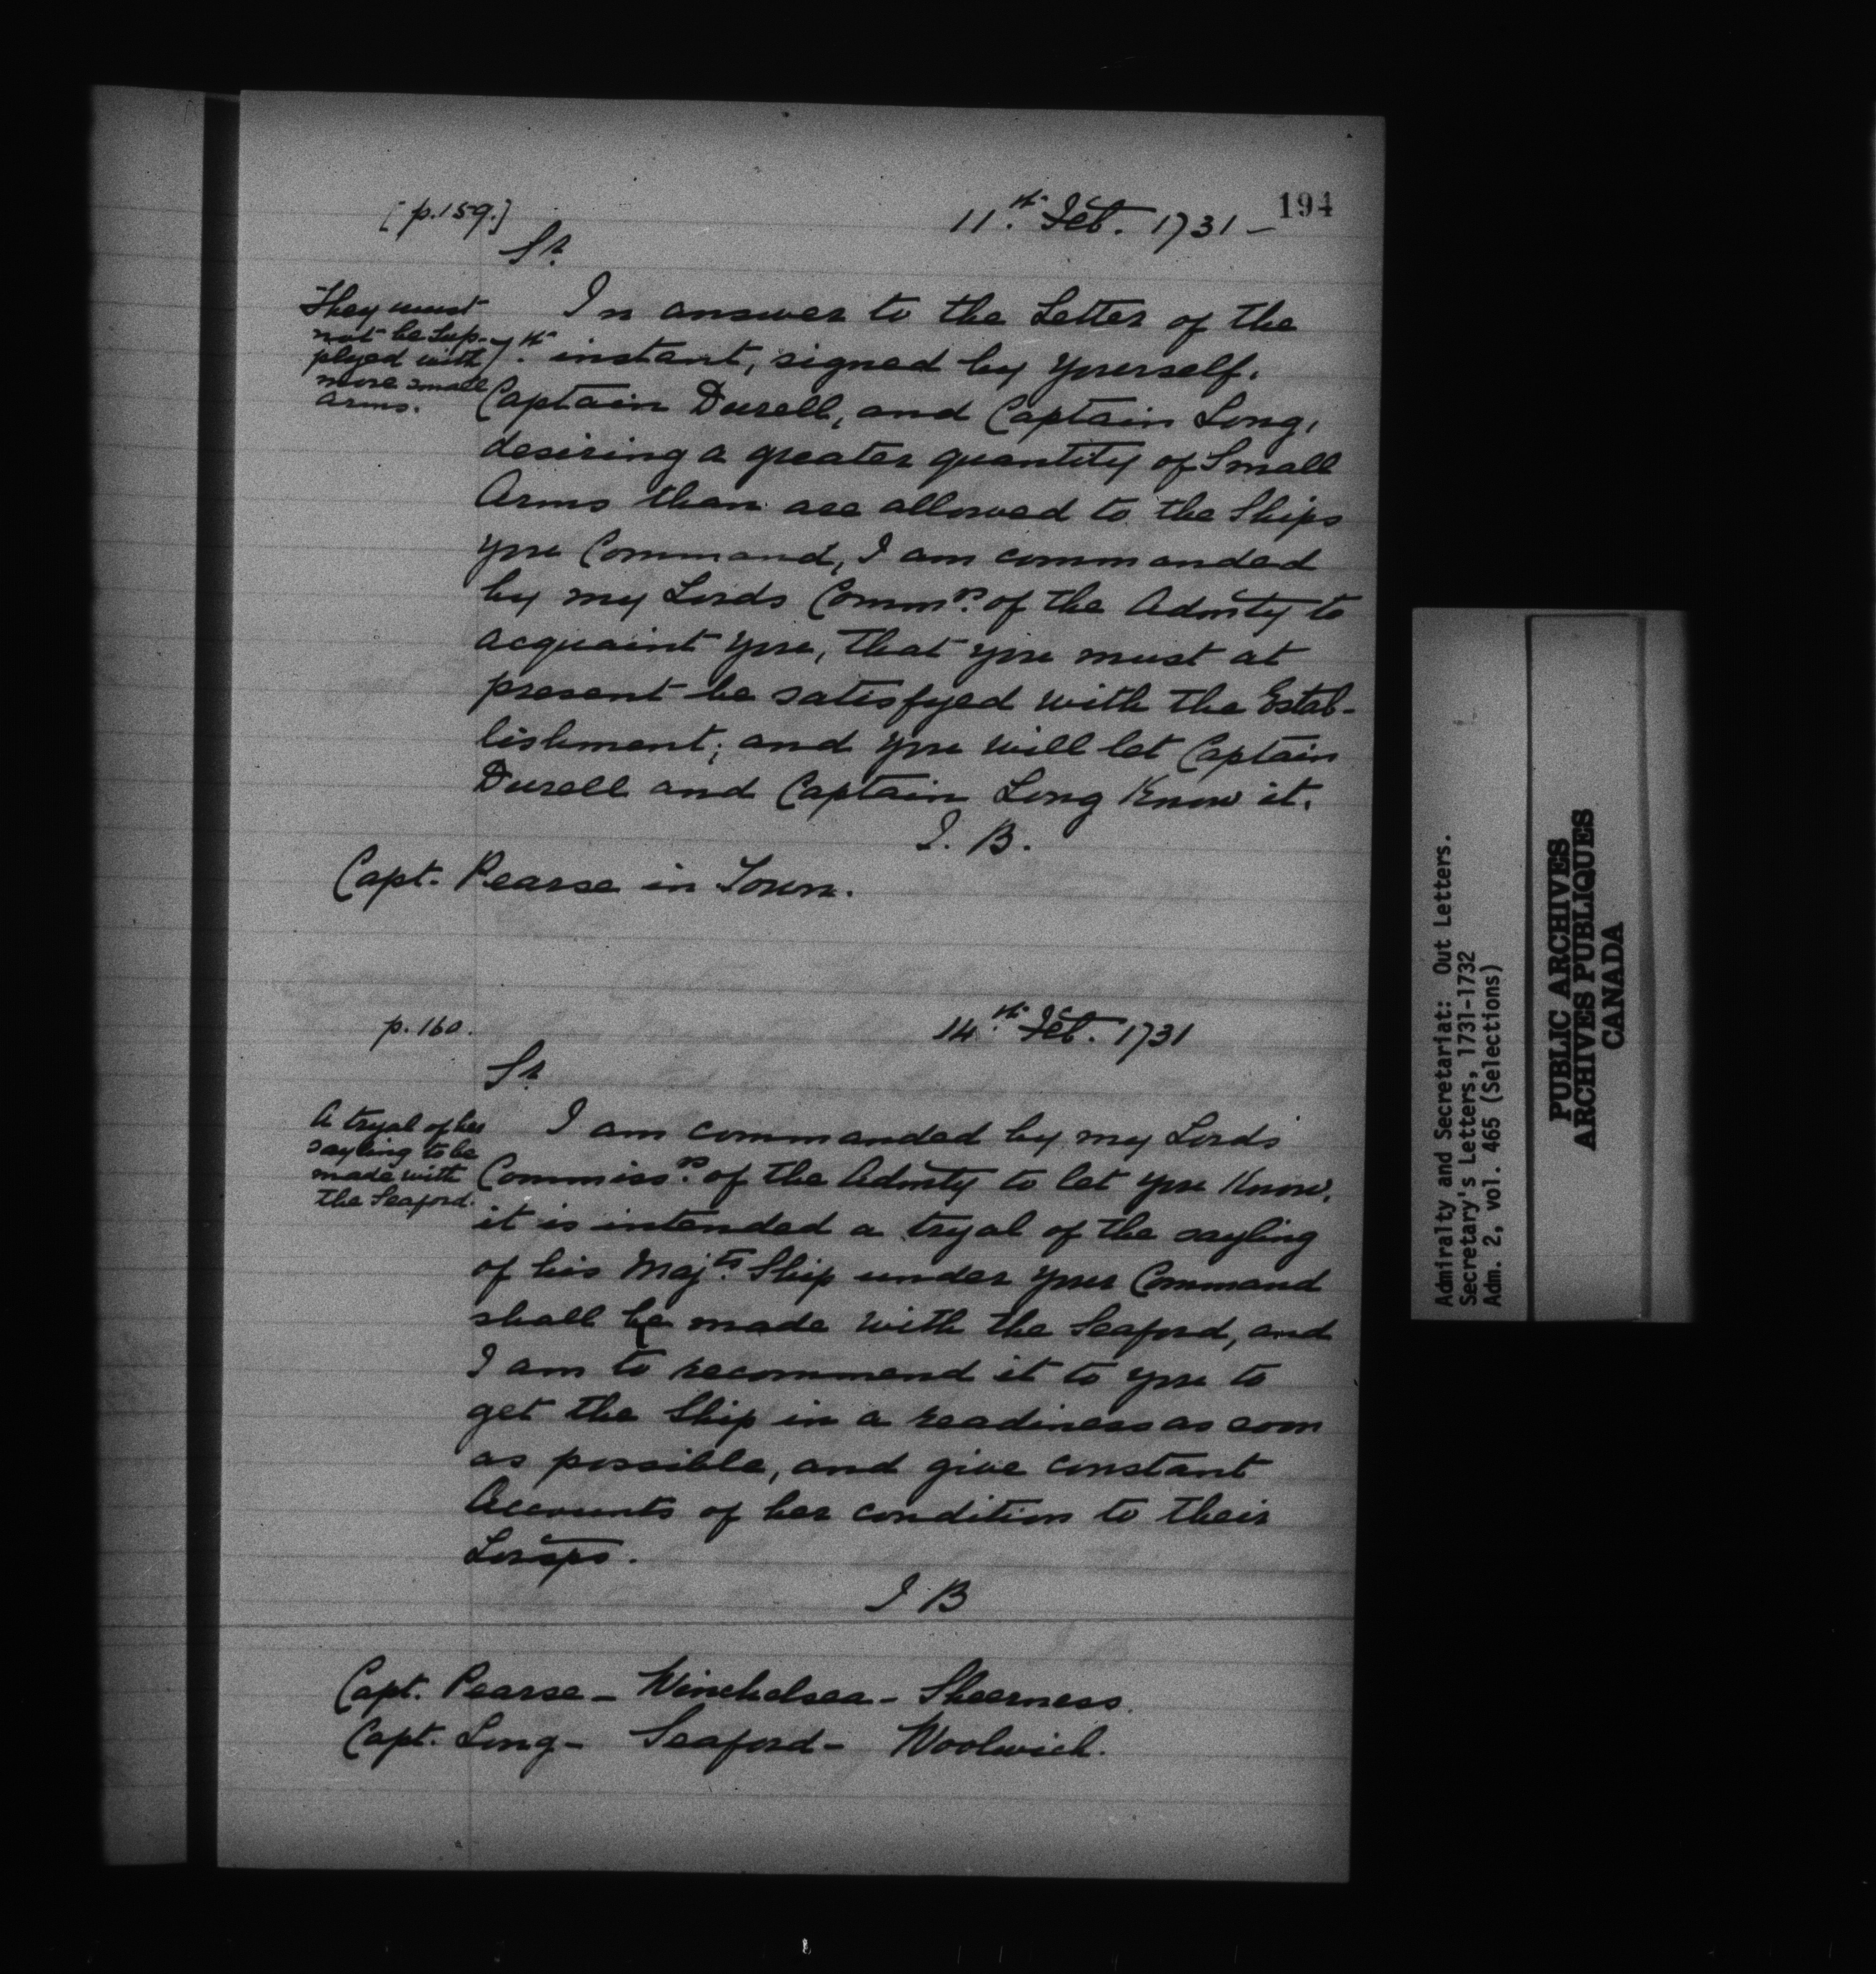 194
[p.159.]
11.th Feb. 1731 –
Sr.
They must
not be Sup-
plyed with
more small
arms.
In answer to the Letter of the
7.th instant, signed by yourself,
Captain Durell, and Captain Long,
desiring a greater quantity of Small
Arms than are allowed to the Ships
you Command, I am commanded
by my Lords Commrs. of the Admty to
acquaint you, that you must at
present be satisfyed with the Estab-
lishment; and you will let Captain
Durell and Captain Long Know it.
J. B.
Capt. Pearse in Town.
p. 160.
14.th Feb. 1731
Sr.
A tryal of her
sayling to be
made with
the Seaford.
I am commanded by my Lords
Commissrs. of the Admty to let you Know,
it is intended a tryal of the sayling
of his Majts. Ship under your Command
shall be made with the Seaford, and
I am to recommend it to you to
get the Ship in a readiness as soon
as possible, and give constant
Accounts of her condition to their
Lordps.
J B
Capt. Pearse – Winchelsea – Sheerness.
Capt. Long – Seaford – Woolwich.
Admiralty and Secretariat: Out Letters.
Secretary's Letters, 1731-1732
Adm. 2, vol. 465 (Selections)
PUBLIC ARCHIVES
ARCHIVES PUBLIQUES
CANADA